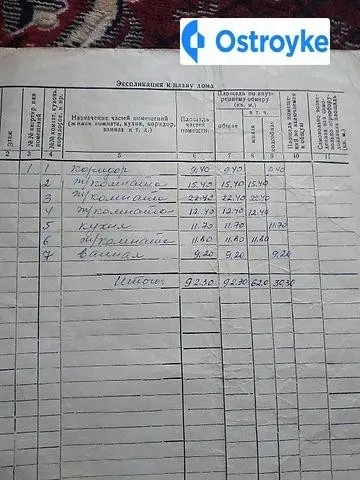 Ostroyke
Экспликация к плану дома
Этаж
№№ квартир или помещений
№№ комнат, кухонь, коридоров, и пр.
Назначение частей помещений (жилая комната, кухня, коридор, ванная и т. д.)
Площадь частей помещен.
Площадь по внутреннему обмеру (кв. м.)
общая
в т. ч.
жилая
подсобная
2 3 4 5 6 7 8 9 10 11
1 1 коридор 9,40 9,40 9,40
2 ж/комната 15,40 15,40 15,40
3 ж/комната 22,40 22,40 22,40
4 ж/комната 12,40 12,40 12,40
5 кухня 11.70 11.70 11.70
6 ж/комната 11.80 11.80 11.80
7 ванная 9,20 9,20 9,20
Итого: 92.30 92.30 62.0 30.30